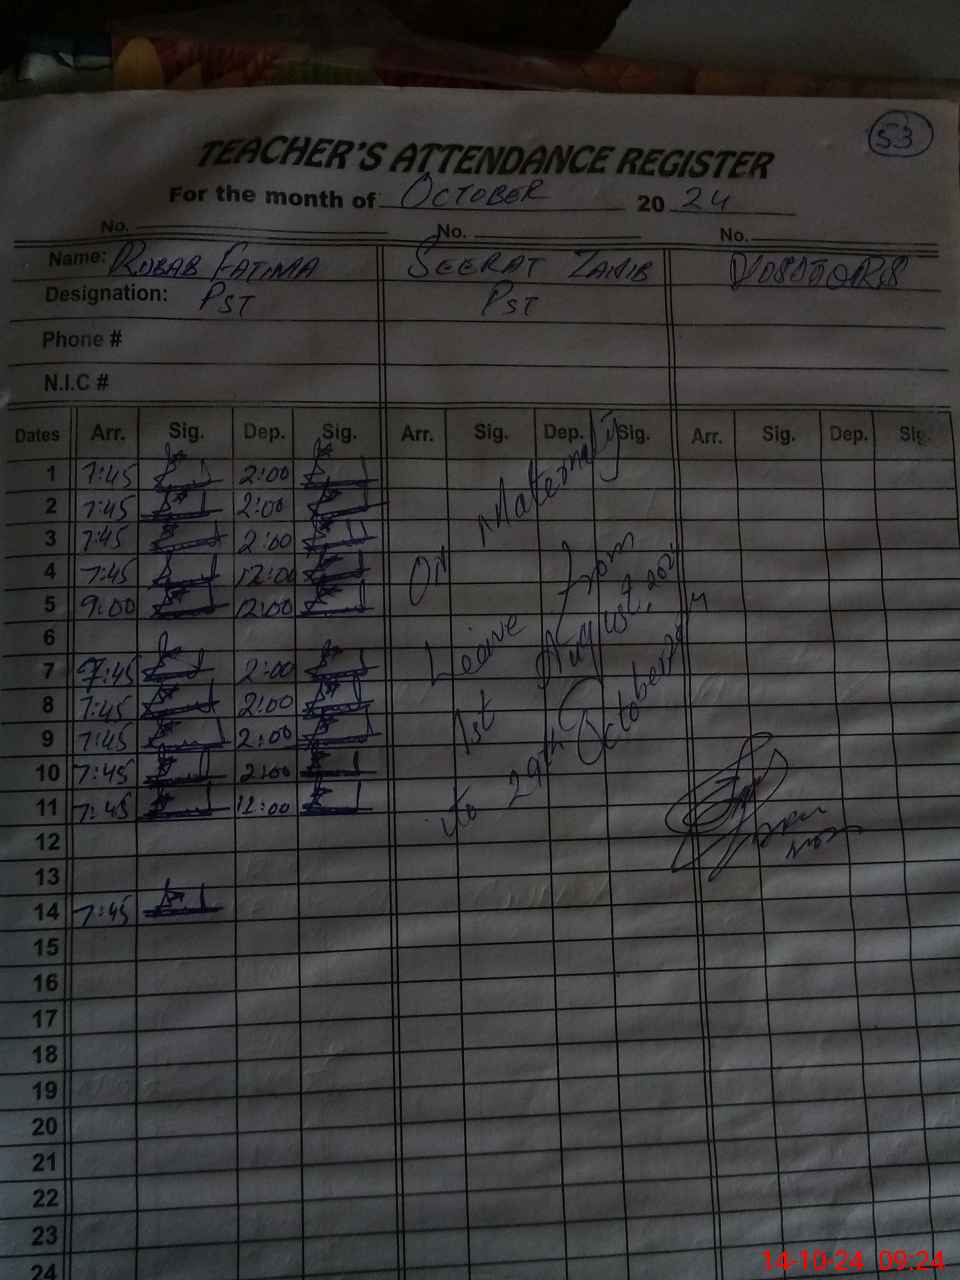 53
TEACHER'S ATTENDANCE REGISTER
For the month of OCTOBER 2024
No. No. No.
Name: RUBAB FATIMA SEERAT ZAHIB
Designation: PST PST
Phone #
N.I.C #
Dates Arr. Sig. Dep. Sig. Arr. Sig. Dep. Sig. Arr. Sig. Dep. Sig.
1 7:45 2:00
2 7:45 2:00
3 7:45 2:00
4 7:45 12:00
5 9:00 12:00
6
7 7:45 2:00
8 7:45 2:00
9 7:45 2:00
10 7:45 2:00
11 7:45 12:00
12
13
14 7:45
15
16
17
18
19
20
21
22
23
24
On Maternity
Leave from
1st August, 2024
to 29th October
14-10-24 09:24